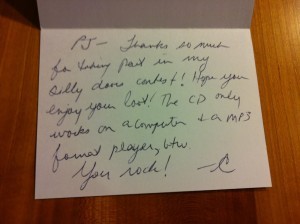 PJ — Thanks so much
for taking part in my
silly dano contest! Hope you
enjoy your loot! The CD only
works on a computer + a MP3
format player, btw.
You rock! —C